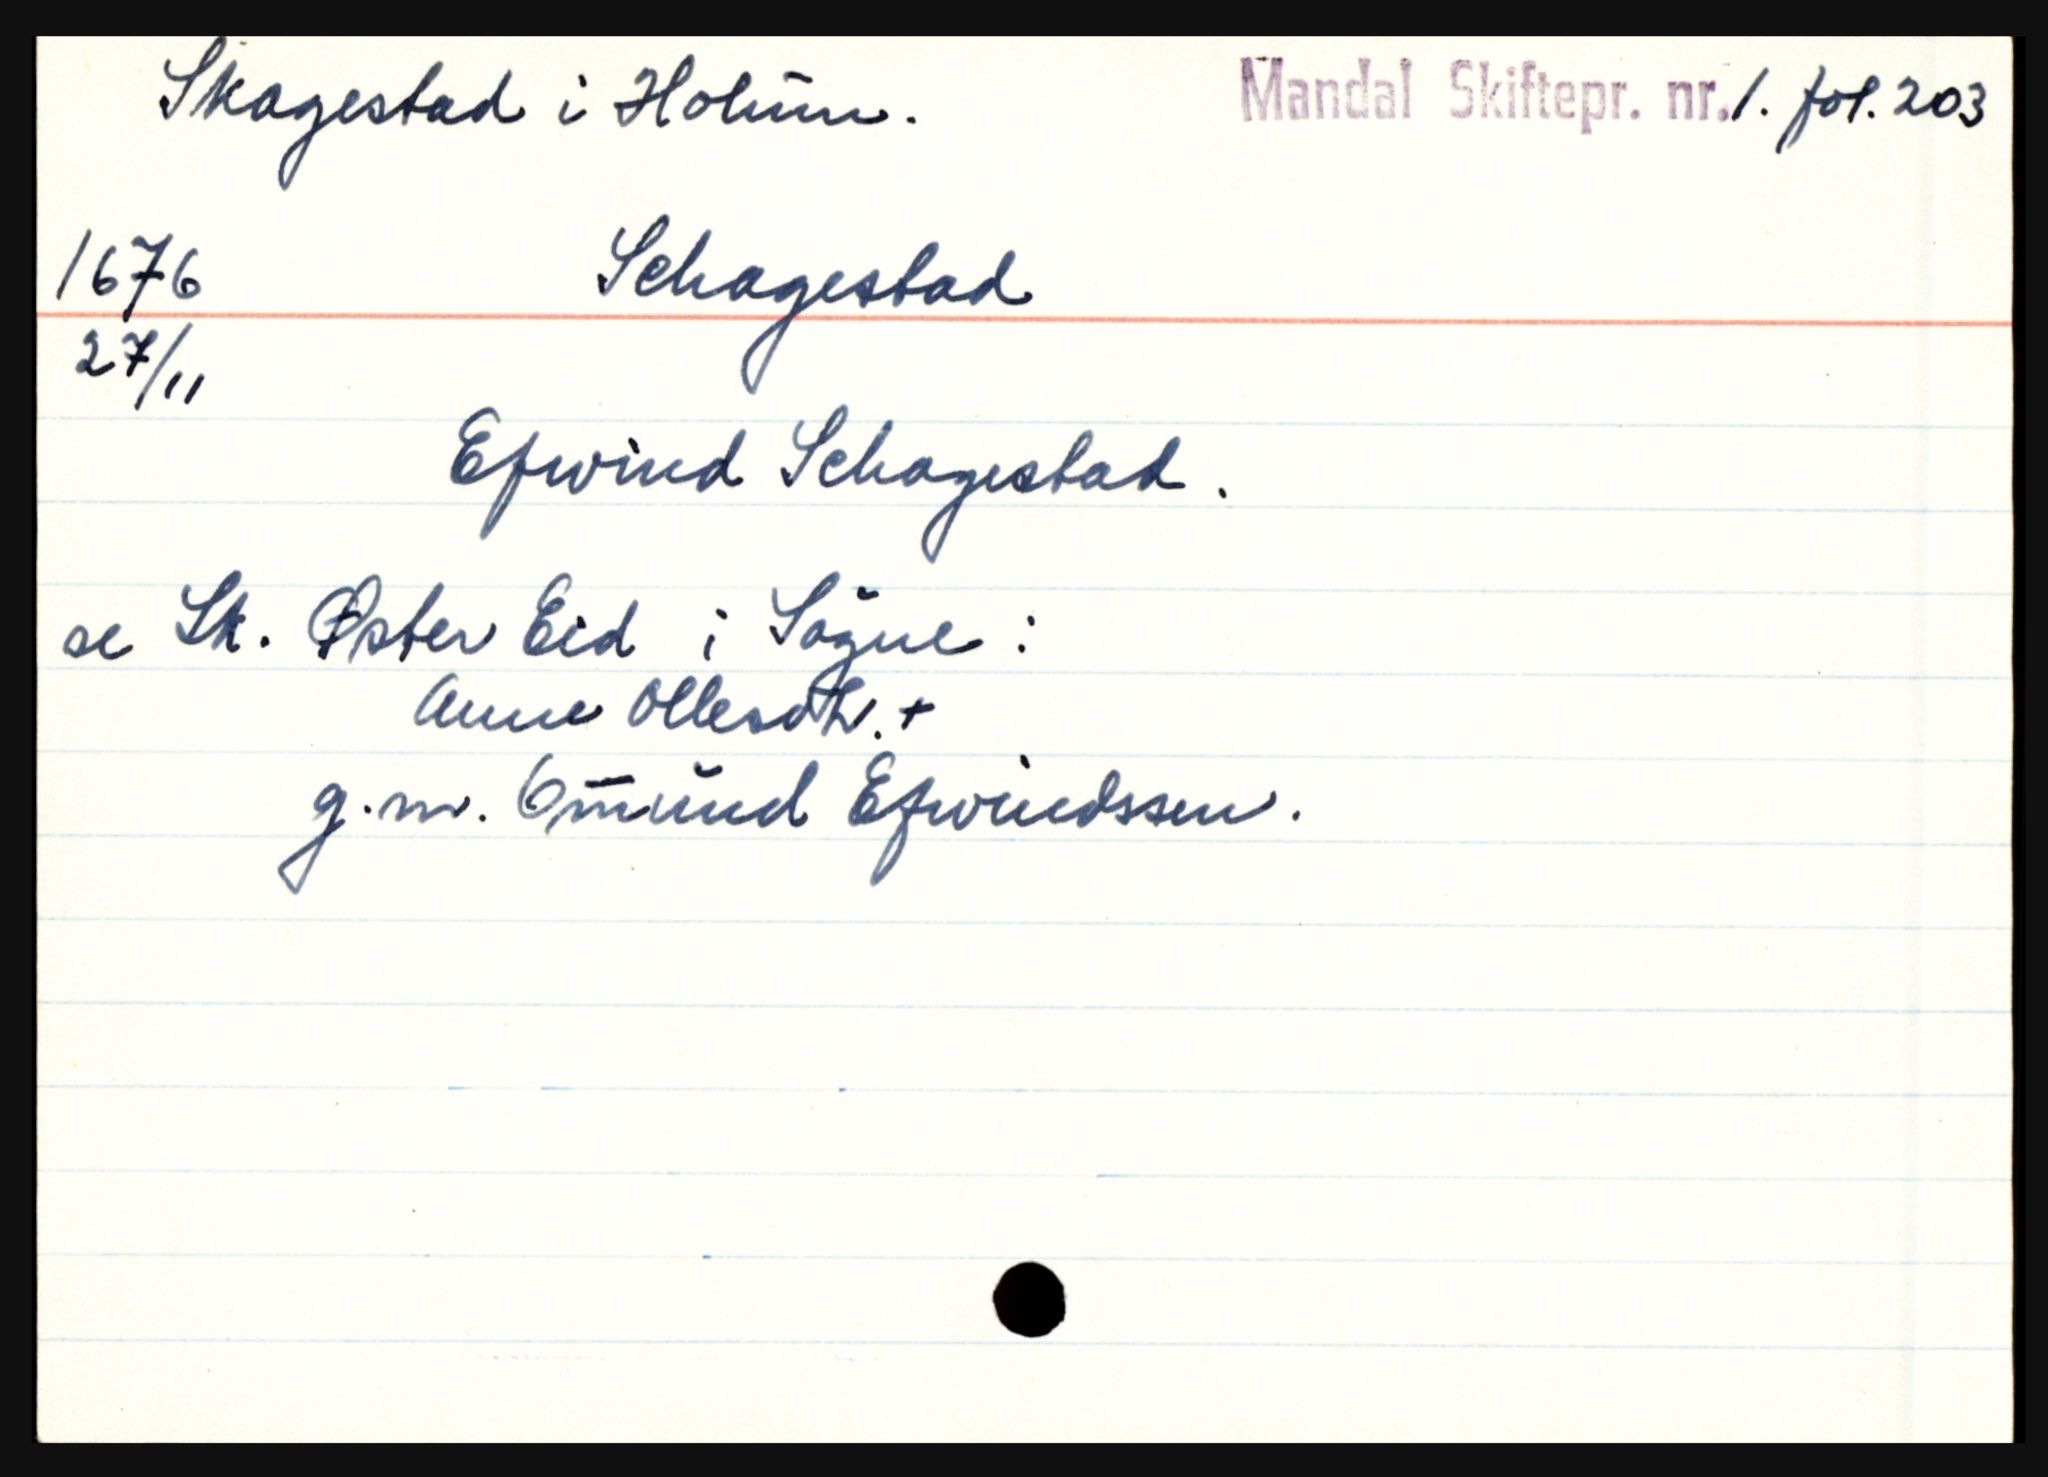 Skagestad i Holum. Mandal Skiftepr. nr. 1. fol. 203
1676 Schagestad
27/11
Efwind Schagestad.
se Sk. Øster Eid i Søgne:
Anne Ollesdtr. +
g. m. Omund Efwindssen.